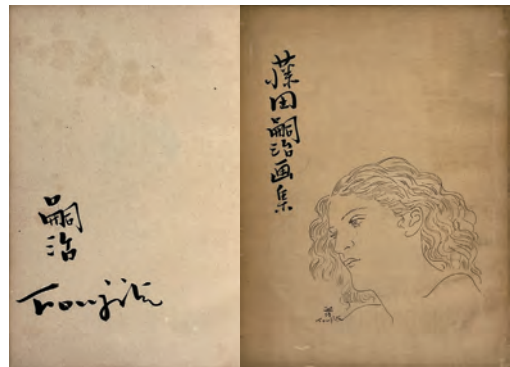 嗣治
Foujita
藤田嗣治画集
嗣治
Foujita